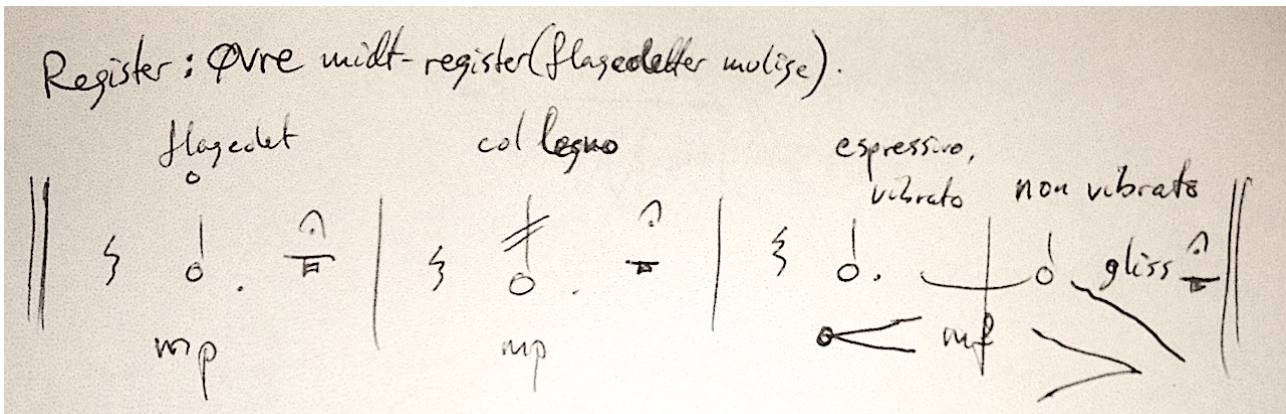 Register: Øvre midt-register (flageoletter mulige).
flageolet
col legno
espressivo,
vibrato
non vibrato
gliss
mp
mp
mf